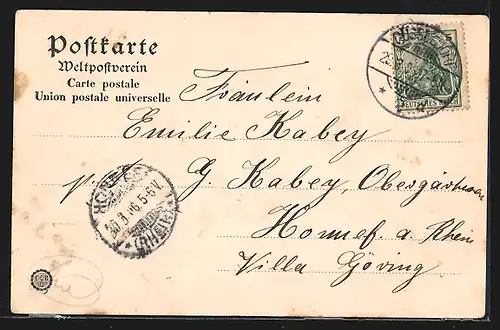 Postkarte
Weltpostverein
Carte postale
Union postale universelle
Fräulein
Emilie Kabey
G. Kabey, Obergärtner
Honnef a. Rhein
Villa Göring
DEUTSCHES REICH
HONNEF
30.8.06.5-6V.
(RHEIN)